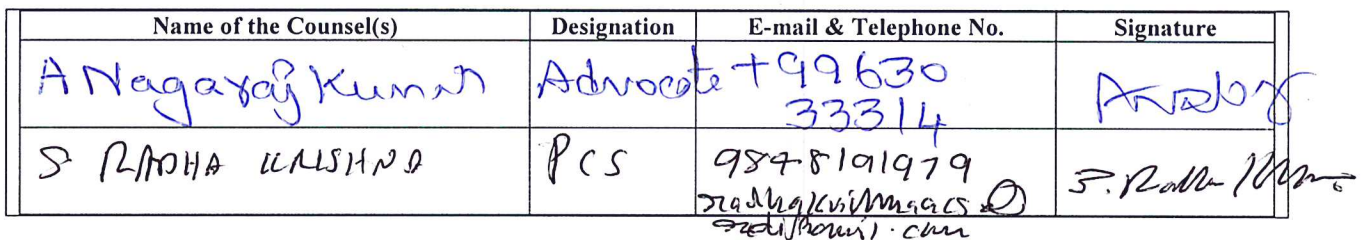 Name of the Counsel(s) Designation E-mail & Telephone No. Signature
A Nagaraj Kumar Advocate +99630
33314
S RADHA KRISHNA PCS 9848191979
radhakrishnaacs@
rediffmail.com